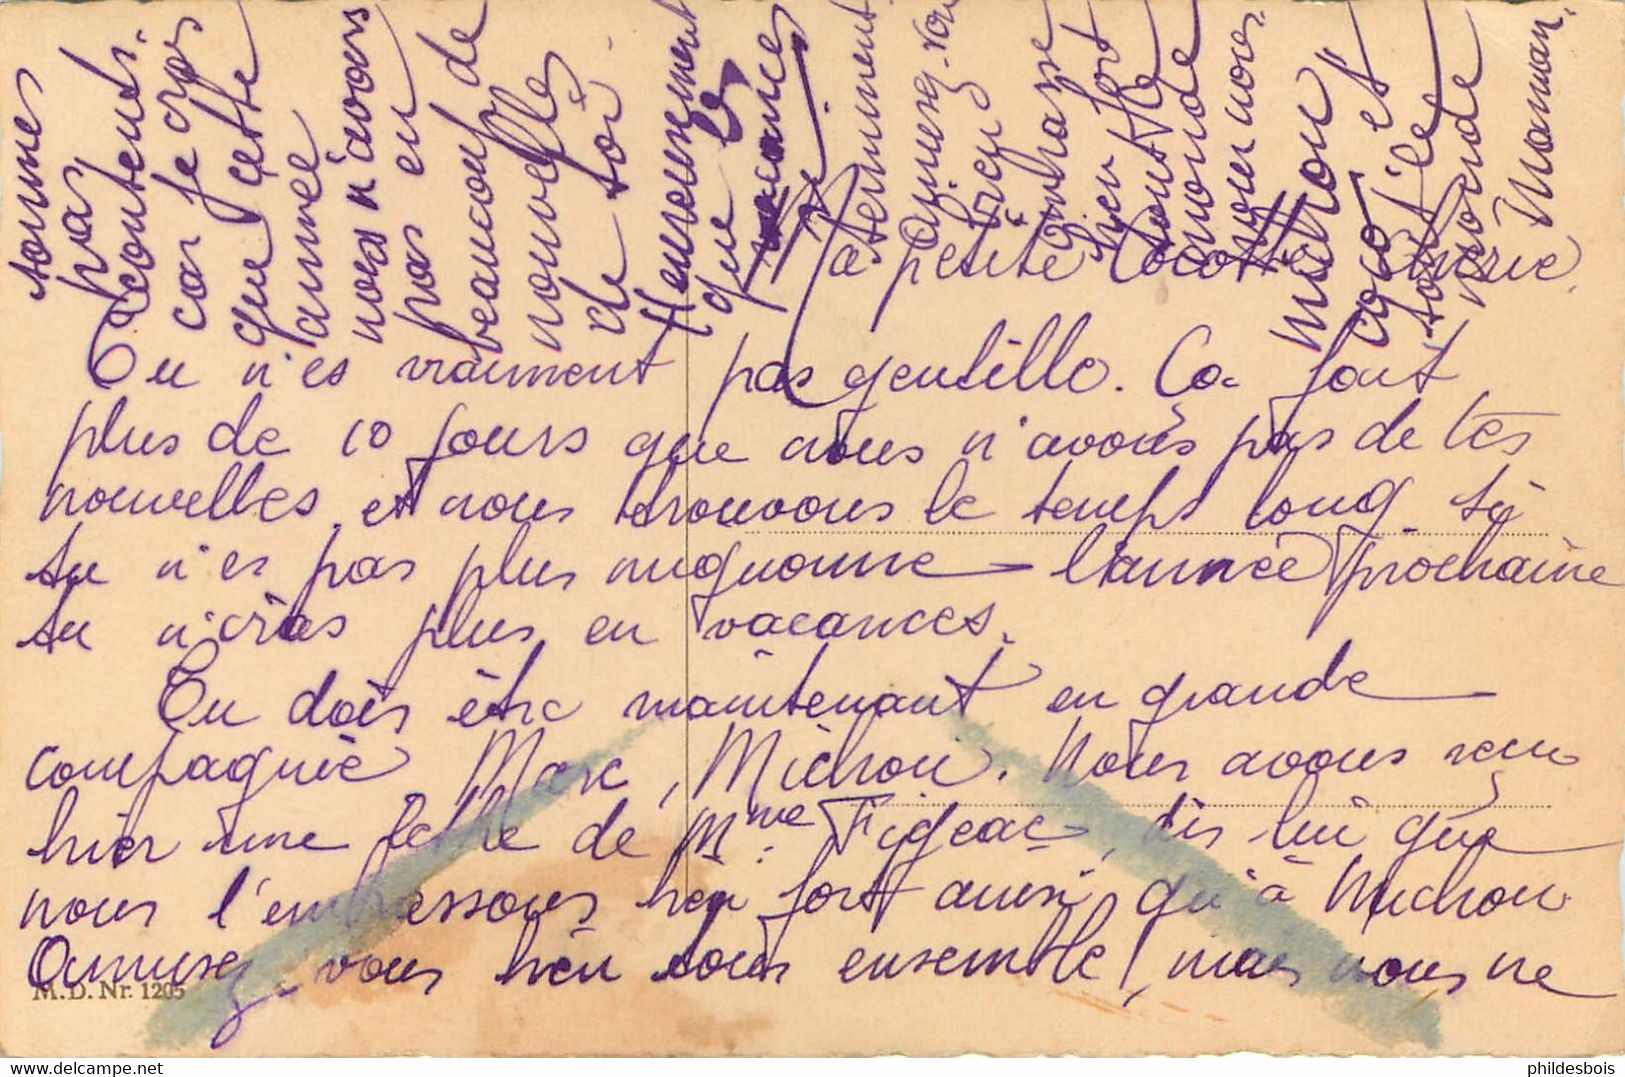 Ma petite Cocotte chérie.
Tu n'es vraiment pas gentille. Ça fait
plus de 10 jours que nous n'avons pas de tes
nouvelles, et nous trouvons le temps long. Si
tu n'es pas plus mignonne l'année prochaine
tu n'iras plus en vacances.
Tu dois être maintenant en grande
compagnie, Marc, Michou. Nous avons reçu
hier une lettre de Mme Figeac, dis lui que
nous l'embrassons bien fort ainsi qu'à Michou
Amusez vous bien tous ensemble, mais nous ne
sommes
pas
contents.
car je crois
que cette
année
nous n'avons
pas eu
beaucoup de
nouvelles
de toi.
Heureusement
que les
vacances
se
terminent.
Amusez-vous
bien
Embrasse
bien fort
tout le
monde
pour nous.
Michou
et
tout le
monde
Maman.
M.D. Nr. 1205
phildesbois